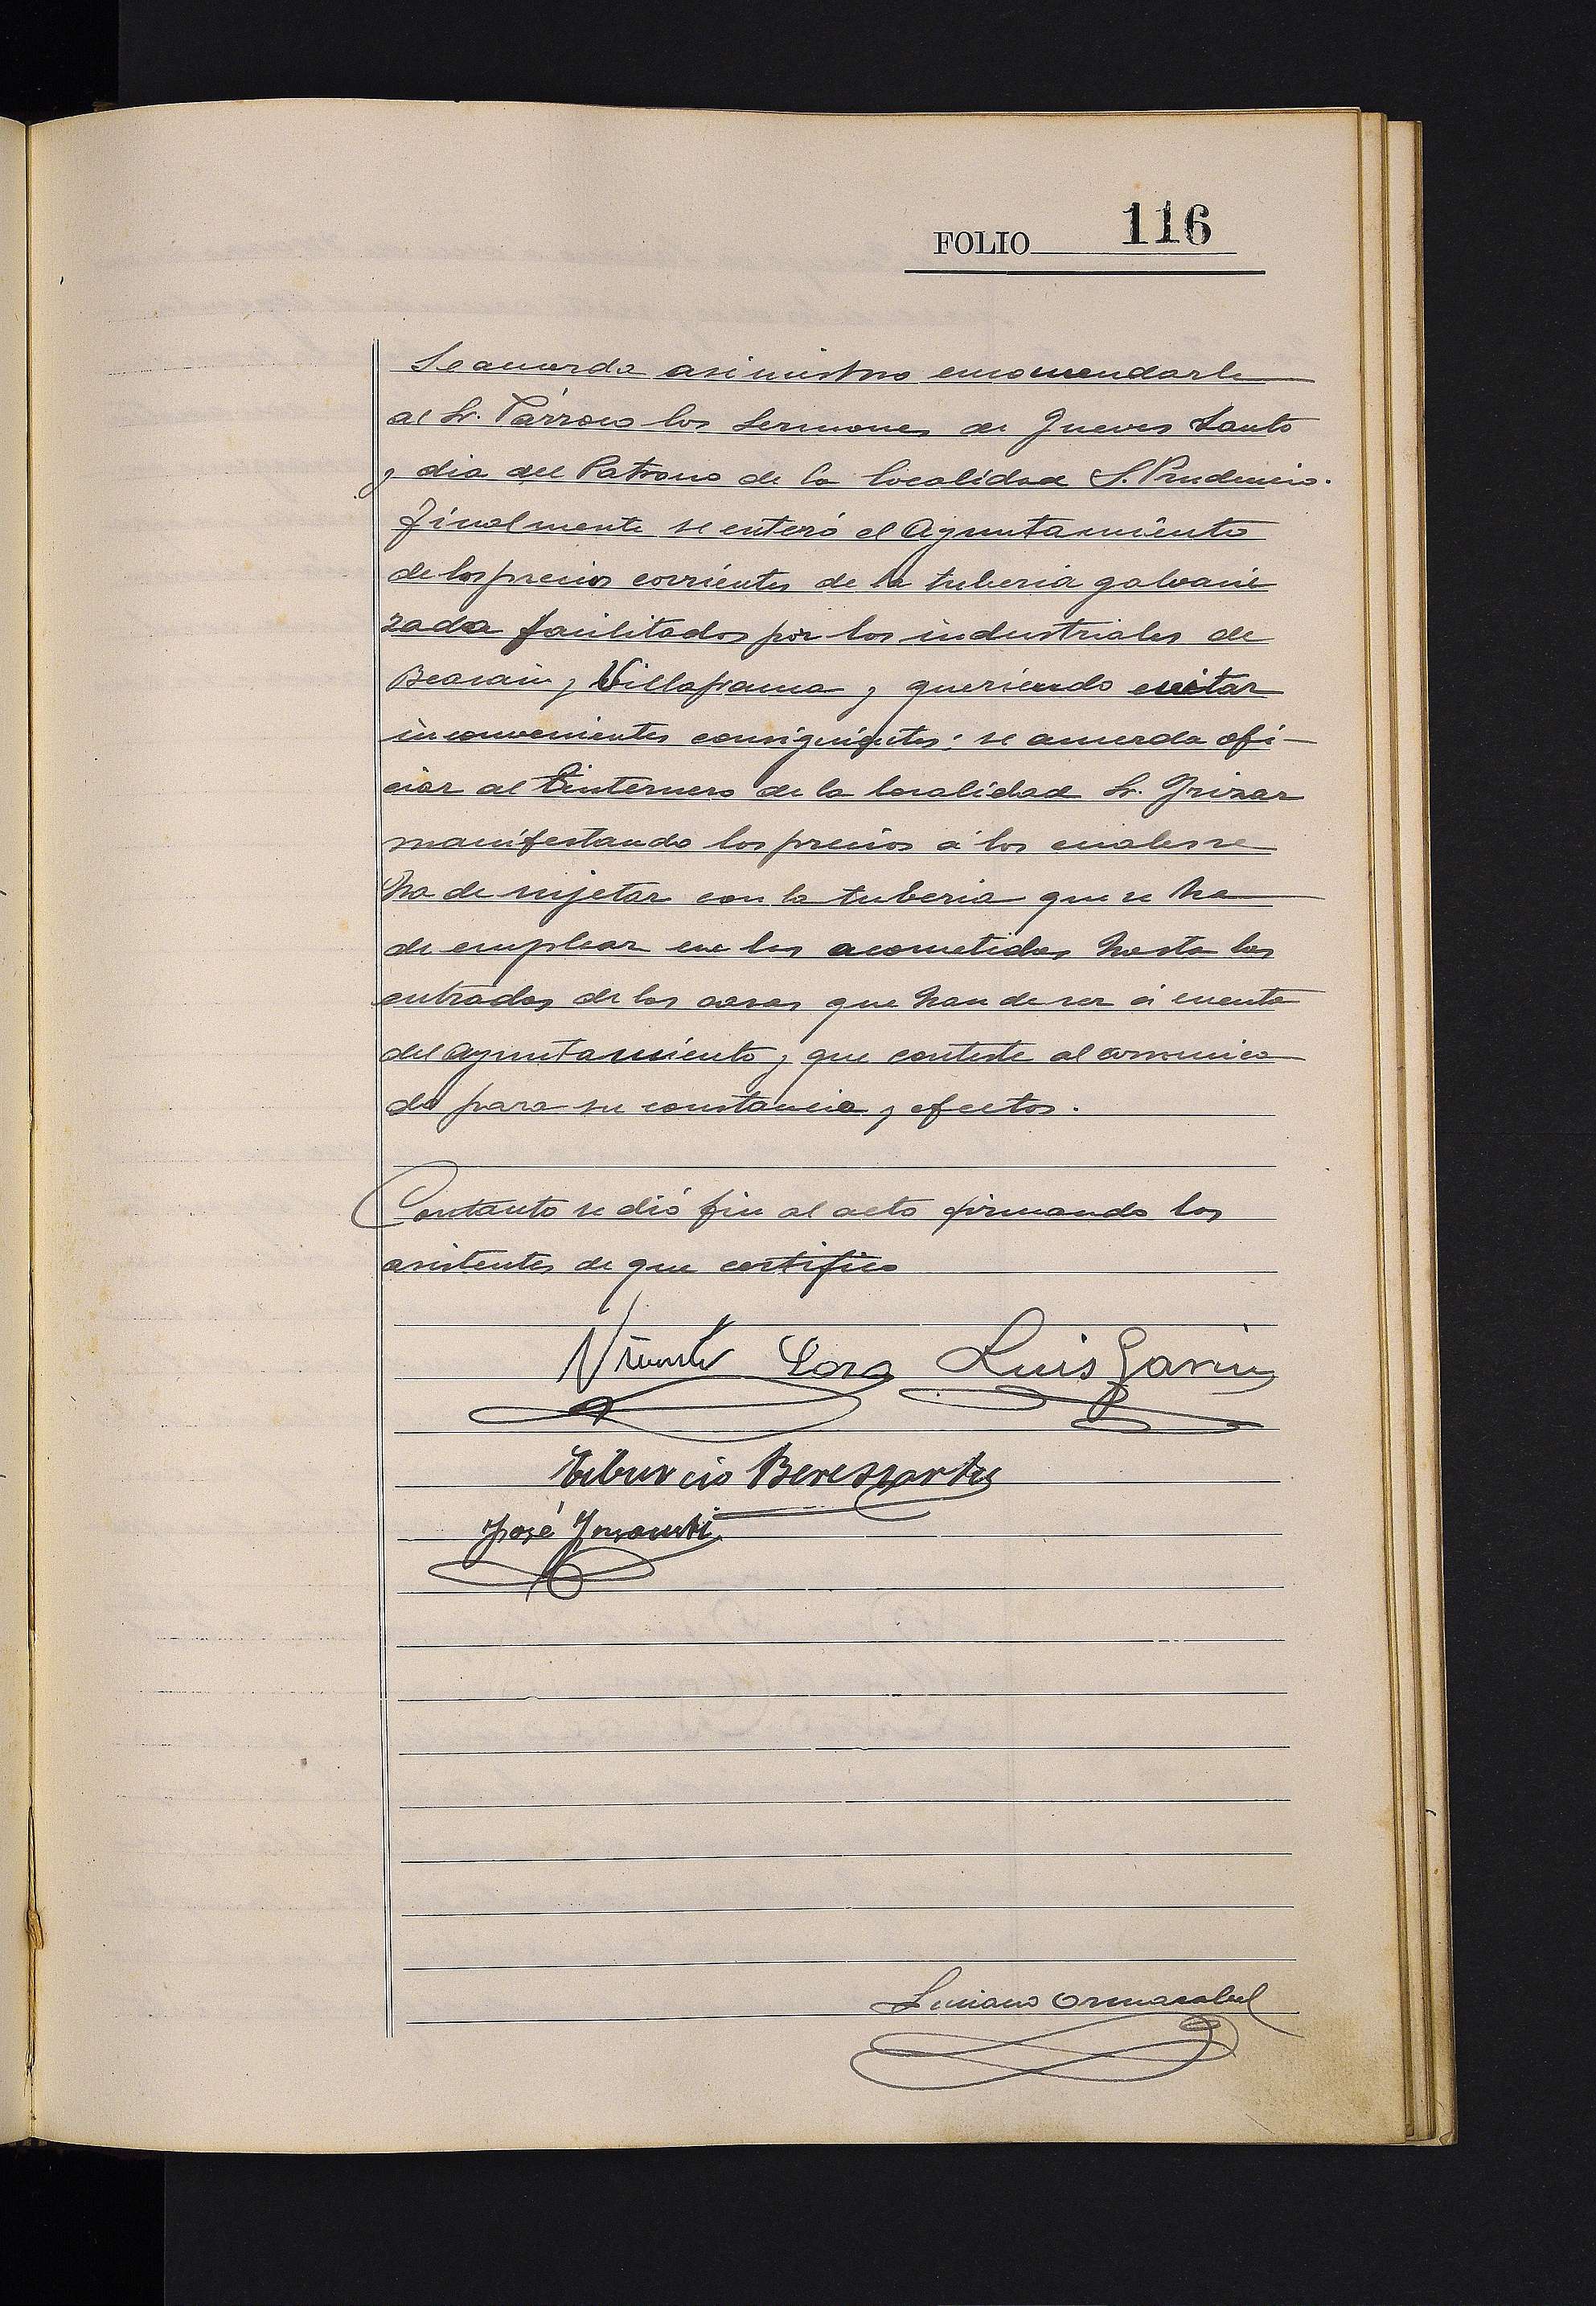 FOLIO 116
Se acuerda asimismo encomendarle
al Sr. Párroco los Sermones de Jueves Santo
y dia del Patrono de la localidad S. Prudencio.
Finalmente se enteró el Ayuntamiento
de los precios corrientes de la tuberia galvani
zada facilitados por los industriales de
Beasain y Villafranca y queriendo evitar
inconvenientes consiguientes; se acuerda ofi-
ciar al Linternero de la localidad Sr. Irizar
manifestando los precios á los cuales se
ha de sujetar con la tuberia que se ha
de emplear en las acometidas hasta las
entradas de las casas que han de ser á cuenta
del Ayuntamiento y que conteste al comunica
do para su constancia y efectos.
Contanto se dió fin al acto firmando los
asistentes de que certifico
Vicente Luis Garin
Tiburcio
José
Luciano Ormazabal